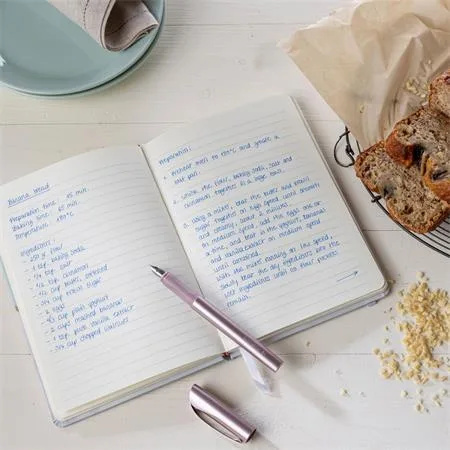 Banana bread
Preparation time : 45 min.
Baking time : 65 min.
Temperature : 170°C
Ingredients :
- 250 g flour
- 1 tsp. baking soda
- 1/4 tsp. salt
- 1/2 cup butter, softened
- 3/4 cup brown sugar
- 2 eggs
- 1/3 cup plain yoghurt
- 2 cups mashed bananas
- 1 tsp. pure vanilla extract
- 3/4 cup chopped walnuts
Preparation:
1. Preheat oven to 170°C and grease a
loaf pan.
2. Whisk the flour, baking soda, salt and
cinnamon together in a large bowl.
3. Using a mixer, beat the butter and brown
sugar together on high speed until smooth
and creamy, about 2 minutes.
On medium speed, add the eggs one at
a time, and beat in the yoghurt, bananas
and vanilla extract on medium speed
until combined.
With the mixer running on low speed,
slowly beat the dry ingredients into the
wet ingredients until no flour pockets
remain.